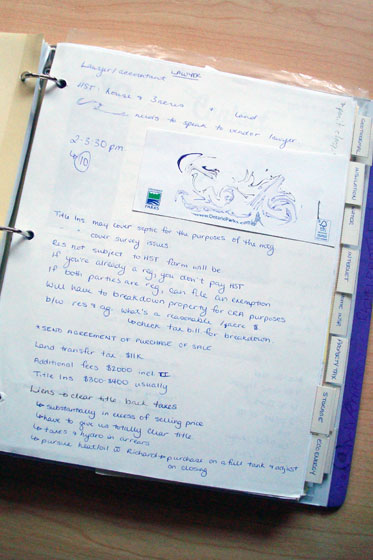 Lawyer/accountant LAWYER
HST: house & 3 acres & land
needs to speak to vendor lawyer
2-3:30 pm
10
PARKS
www.OntarioParks.com
Title Ins may cover septic for the purposes of the mtg
" cover survey issues
Res not subject to HST farm will be
If you're already a reg, you don't pay HST
If both parties are reg, can file an exemption
Will have to breakdown property for CRA purposes
b/w res & ag. what's a reasonable /acre $
↳ check tax bill for breakdown
* SEND AGREEMENT OF PURCHASE OR SALE
Land transfer tax $11K
Additional fees $2000 incl TI
Title Ins $300-$400 usually
Liens → clear title. back taxes
↳ substantially in excess of selling price
↳ have to give us totally clear title.
↳ taxes & hydro in arrears
↳ pursue heat/oil Richard → purchase on a full tank & adjust
on closing
INSULATION
INTERNET
PROPERTY TAX
STORAGE